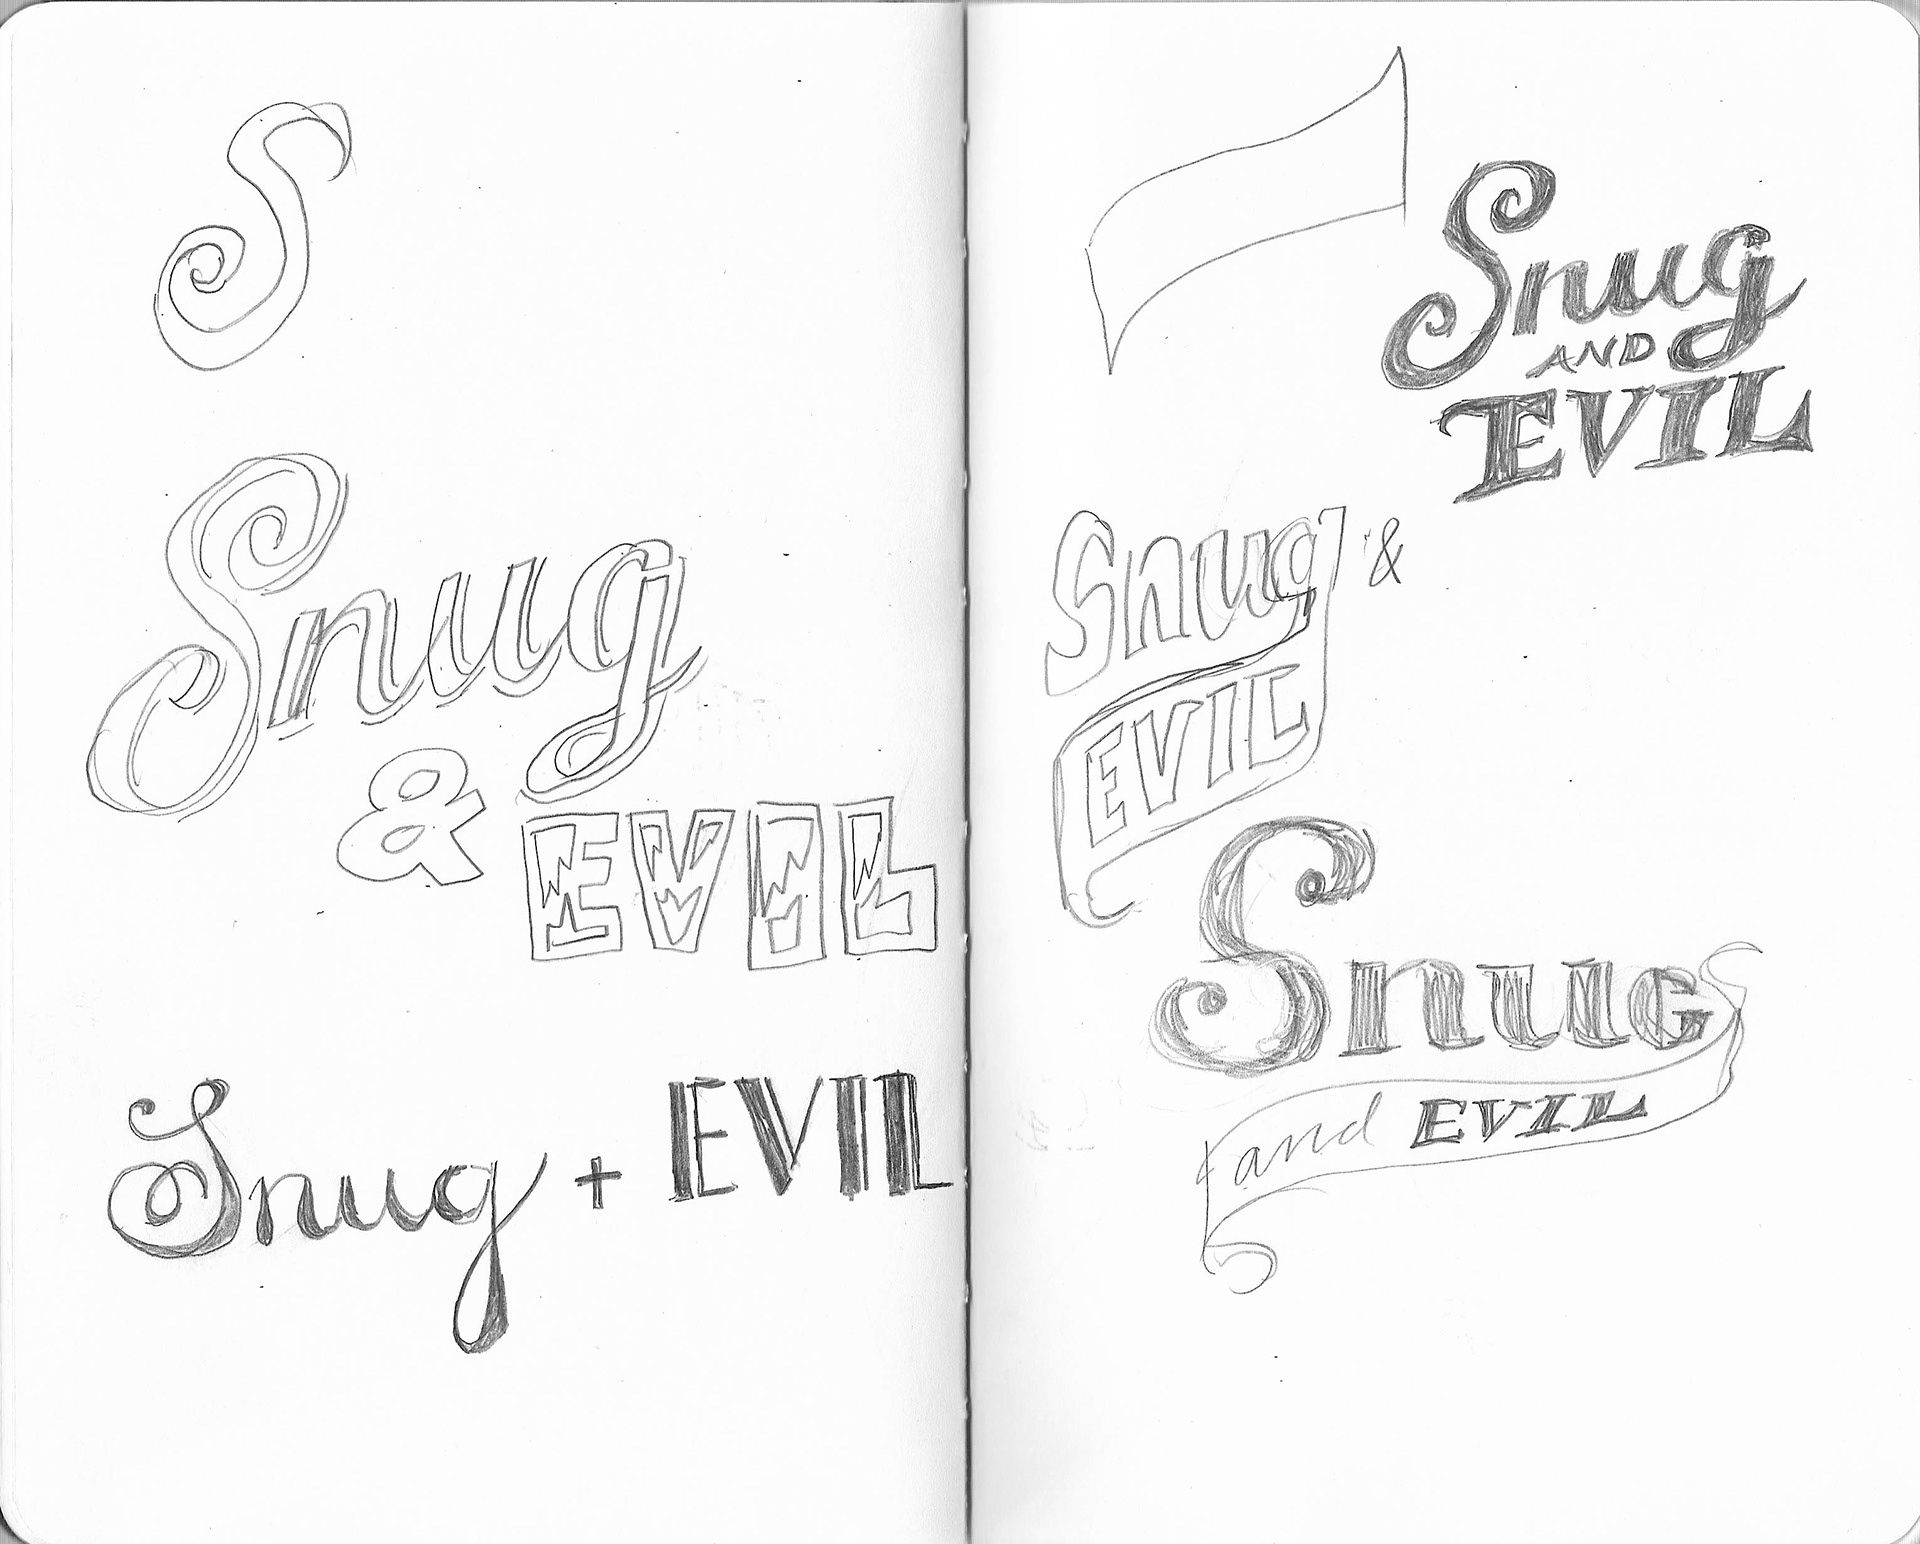 S
Snug
& EVIL
Snug + EVIL
Snug
AND
EVIL
Snug &
EVIL
Snug
and EVIL